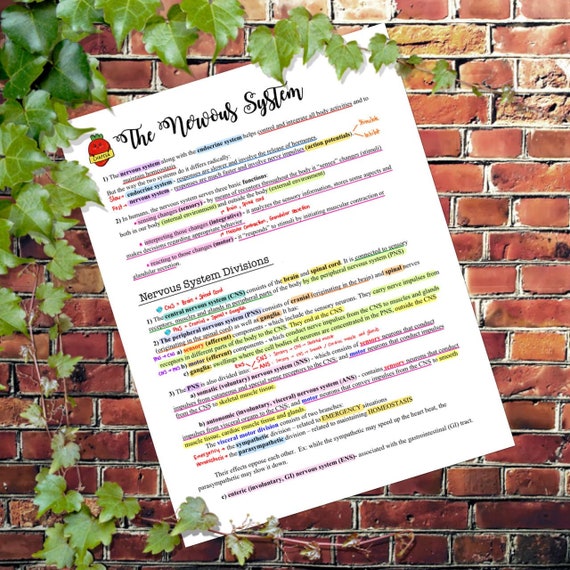 The Nervous System
1) The nervous system along with the endocrine system helps control and integrate all body activities and to
maintain homeostasis
But the way the two systems do it differs radically:
Slow → endocrine system - responses are slower and involve the release of hormones.
Fast → nervous system - responses are much faster and involve nerve impulses (action potentials)
2) In humans, the nervous system serves three basic functions:
+ sensing changes (sensory) - by means of receptors throughout the body it "sense" changes (stimuli)
both in our body (internal environment) and outside the body (external environment)
brain, spinal cord
+ interpreting those changes (integrative) - it analyzes the sensory information, stores some aspects and
makes decisions regarding appropriate behavior
+ reacting to those changes (motor) - it "responds" to stimuli by initiating muscular contraction or
glandular secretion.
Nervous System Divisions
CNS = Brain + Spinal Cord
1) The central nervous system (CNS) consists of the brain and spinal cord. It is connected to sensory
receptors, muscles and glands in peripheral parts of the body by the peripheral nervous system (PNS)
2) The peripheral nervous system (PNS) consists of cranial (originating in the brain) and spinal nerves
(originating in the spinal cord) as well as ganglia. It has:
a) sensory (afferent) components - which include the sensory neurons. They carry nerve impulses from
receptors in different parts of the body to the CNS. They end at the CNS
b) motor (efferent) components - which conduct nerve impulses from the CNS to muscles and glands
c) ganglia: swelling where the cell bodies of neurons are concentrated in the PNS, outside the CNS
3) The PNS is also divided into:
a) somatic (voluntary) nervous system (SNS) - which consists of sensory neurons that conduct
impulses from cutaneous and special sense receptors to the CNS; and motor neurons that conduct impulses
from the CNS to skeletal muscle tissue.
b) autonomic (involuntary, visceral) nervous system (ANS) - contains sensory neurons that conduct
impulses from visceral organs to the CNS; and motor neurons that convey impulses from the CNS to smooth
muscle tissue, cardiac muscle tissue and glands.
The visceral motor division consists of two branches:
Emergency → the sympathetic division – related to EMERGENCY situations
Homeostasis → the parasympathetic division – related to maintaining HOMEOSTASIS
Their effects oppose each other. Ex: while the sympathetic may speed up the heart beat, the
parasympathetic may slow it down.
c) enteric (involuntary, GI) nervous system (ENS)- associated with the gastrointestinal (GI) tract.